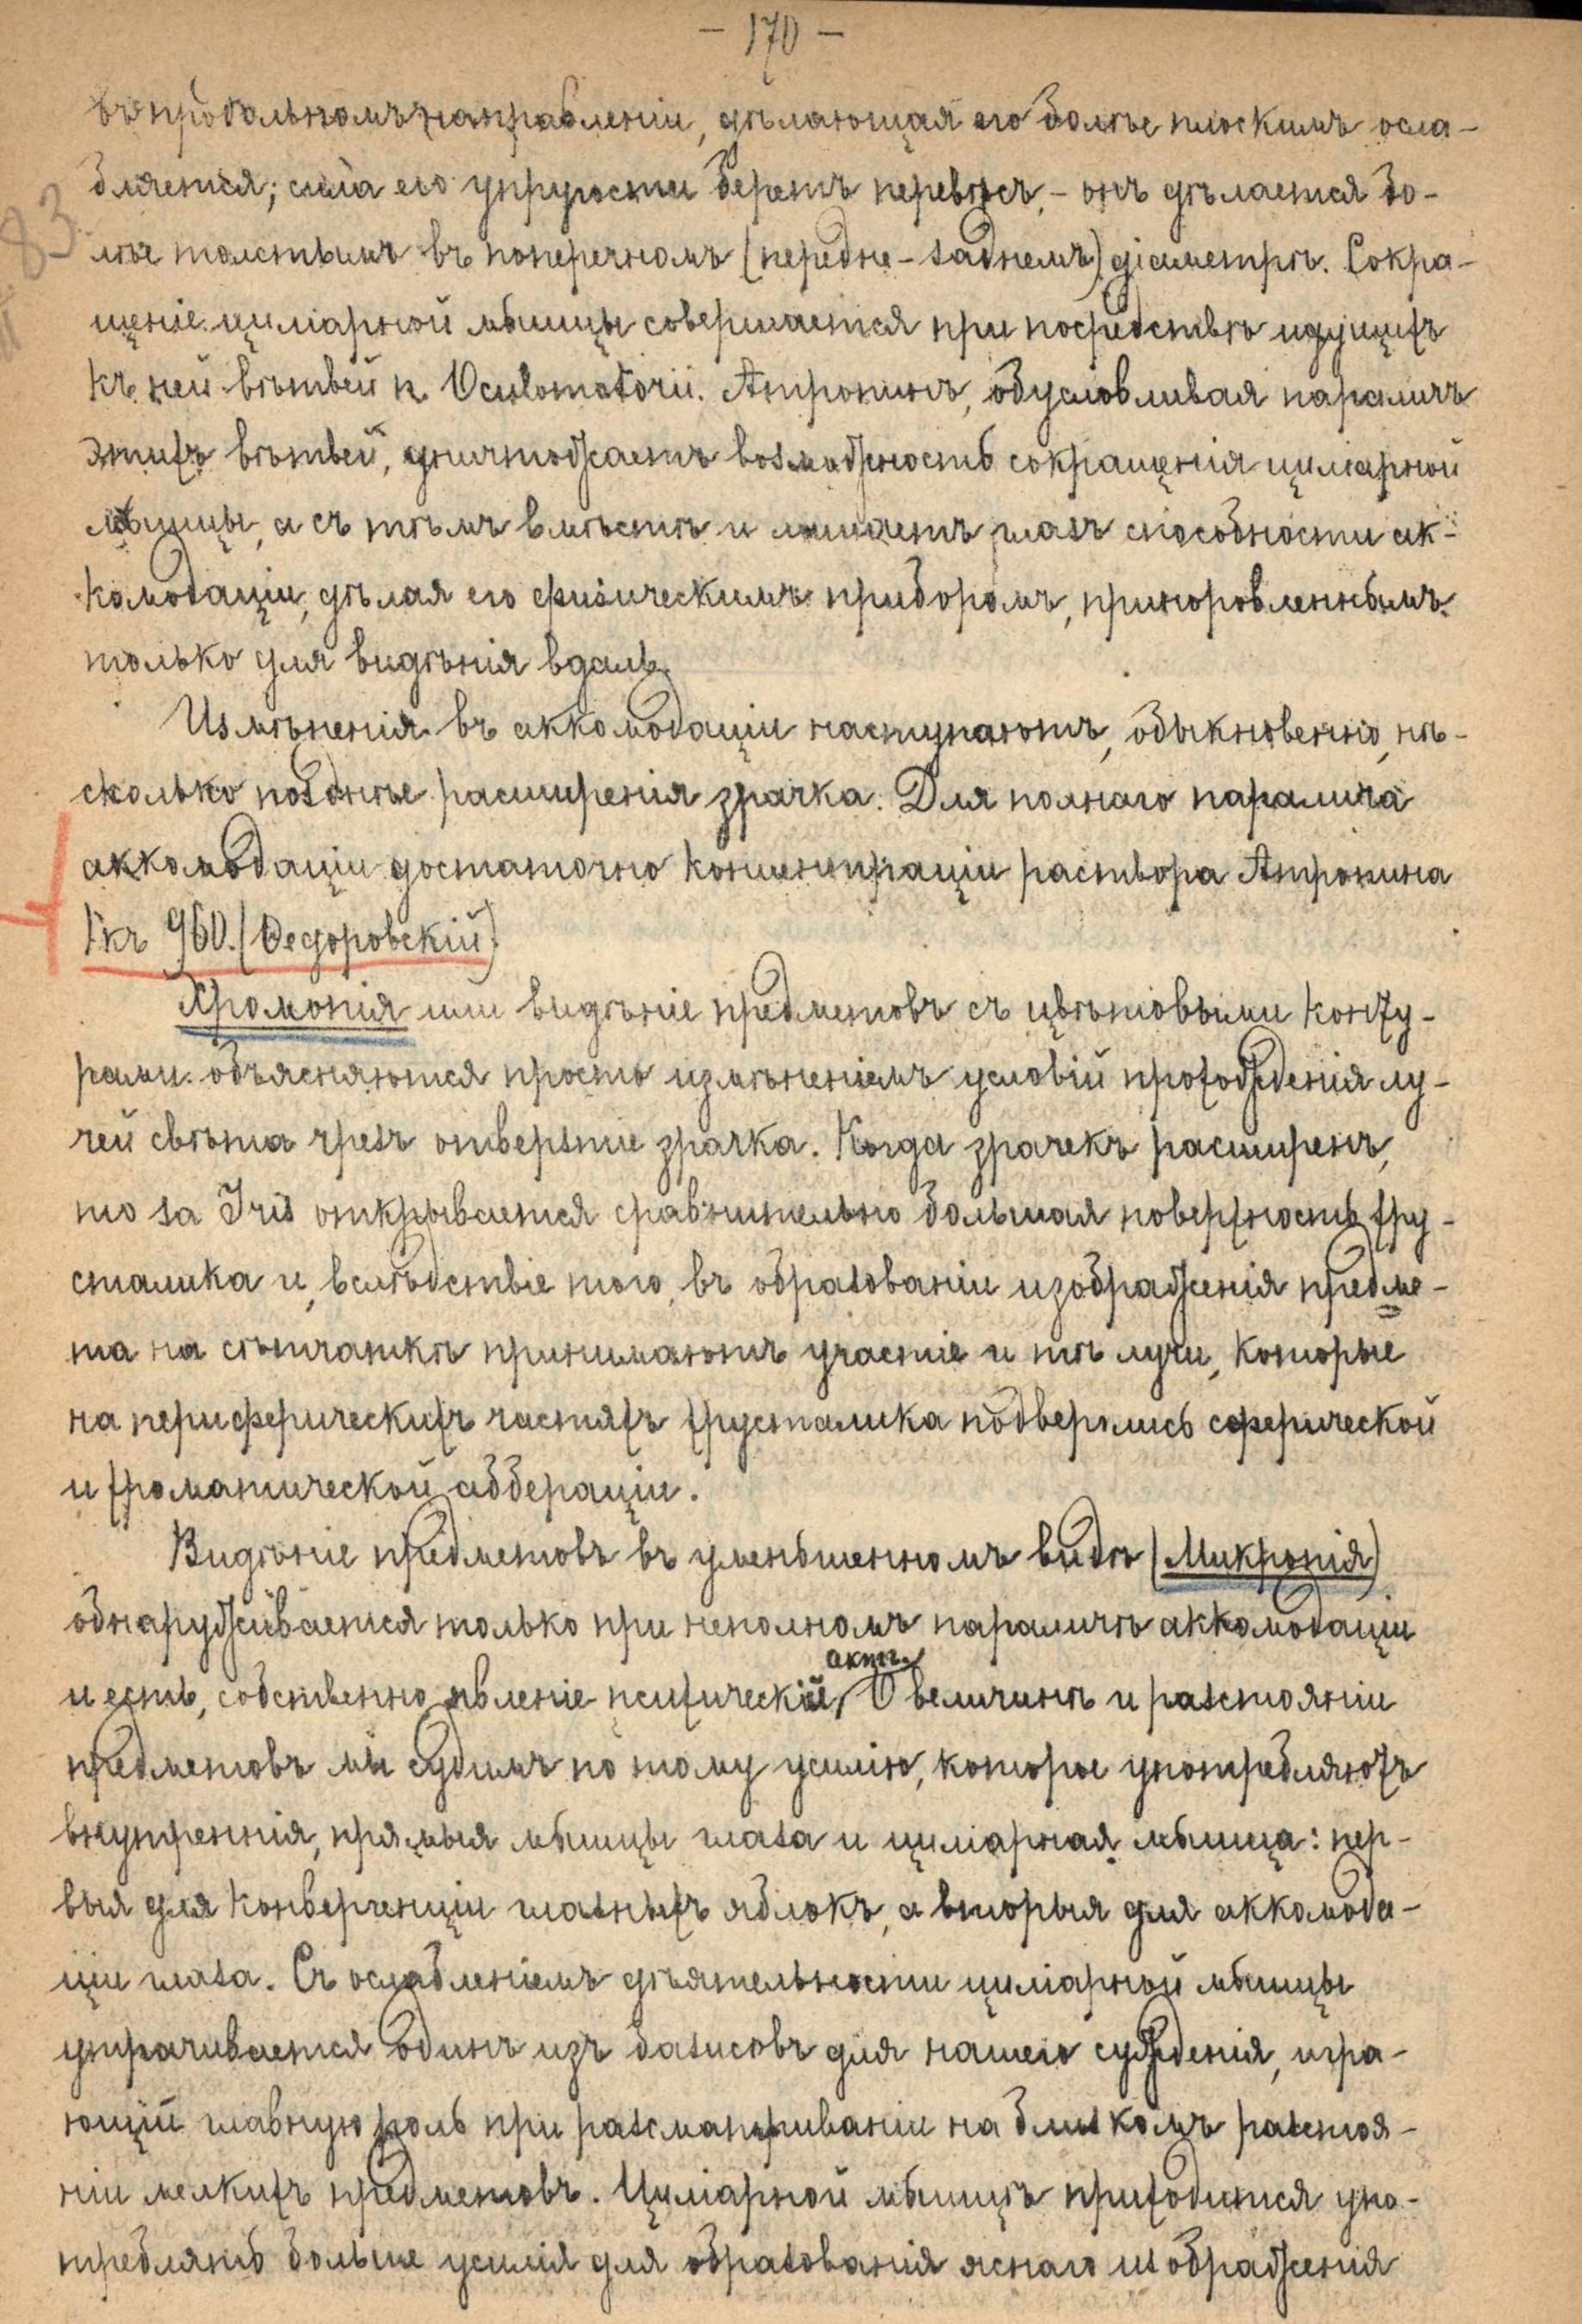 — 170 —
въ продольномъ направленіи, дѣлающая его болѣе плоскимъ осла-
бляется; сила его упругости беретъ перевѣсъ, — онъ дѣлается бо-
лѣе толстымъ въ поперечномъ (передне-заднемъ) діаметрѣ. Сокра-
щеніе циліарной мышцы совершается при посредствѣ идущихъ
къ ней вѣтвей n. Oculomotorii. Атропинъ, обусловливая параличъ
этихъ вѣтвей, уничтожаетъ возможность сокращенія циліарной
мышцы, а съ тѣмъ вмѣстѣ и лишаетъ глазъ способности ак-
комодаціи, дѣлая его физическимъ приборомъ, приноровленнымъ
только для видѣнія вдаль.
Измѣненія въ аккомодаціи наступаютъ, обыкновенно, нѣ-
сколько позднѣе расширенія зрачка. Для полнаго паралича
аккомодаціи достаточно концентраціи раствора Атропина
1 къ 960. (Ѳедоровскій)
Хромопія или видѣніе предметовъ съ цвѣтовыми конту-
рами объясняются просто измѣненіемъ условій прохожденія лу-
чей свѣта чрезъ отверзтіе зрачка. Когда зрачекъ расширенъ,
то за Iris открывается сравнительно большая поверхность хру-
сталика и, вслѣдствіе того, въ образованіи изображенія предме-
та на сѣтчаткѣ принимаютъ участіе и тѣ лучи, которые
на периферическихъ частяхъ хрусталика подверглись сферической
и хроматической абберраціи.
Видѣніе предметовъ въ уменьшенномъ видѣ (Микропія)
обнаруживается только при неполномъ параличѣ аккомодаціи
актъ.
и есть, собственно явленіе психическій О величинѣ и разстояніи
предметовъ мы судимъ по тому усилію, которое употребляютъ
внутреннія, прямыя мышцы глаза и циліарная мышца: пер-
выя для конвергенціи глазныхъ яблокъ, а вторыя для аккомода-
ціи глаза. Съ ослабленіемъ дѣятельности циліарной мышцы
утрачивается одинъ изъ базисовъ для нашего сужденія, игра-
ющій главную роль при разсматриваніи на близкомъ разстоя-
ніи мелкихъ предметовъ. Циліарной мышцѣ приходится упо-
треблять больше усилія для образованія яснаго изображенія